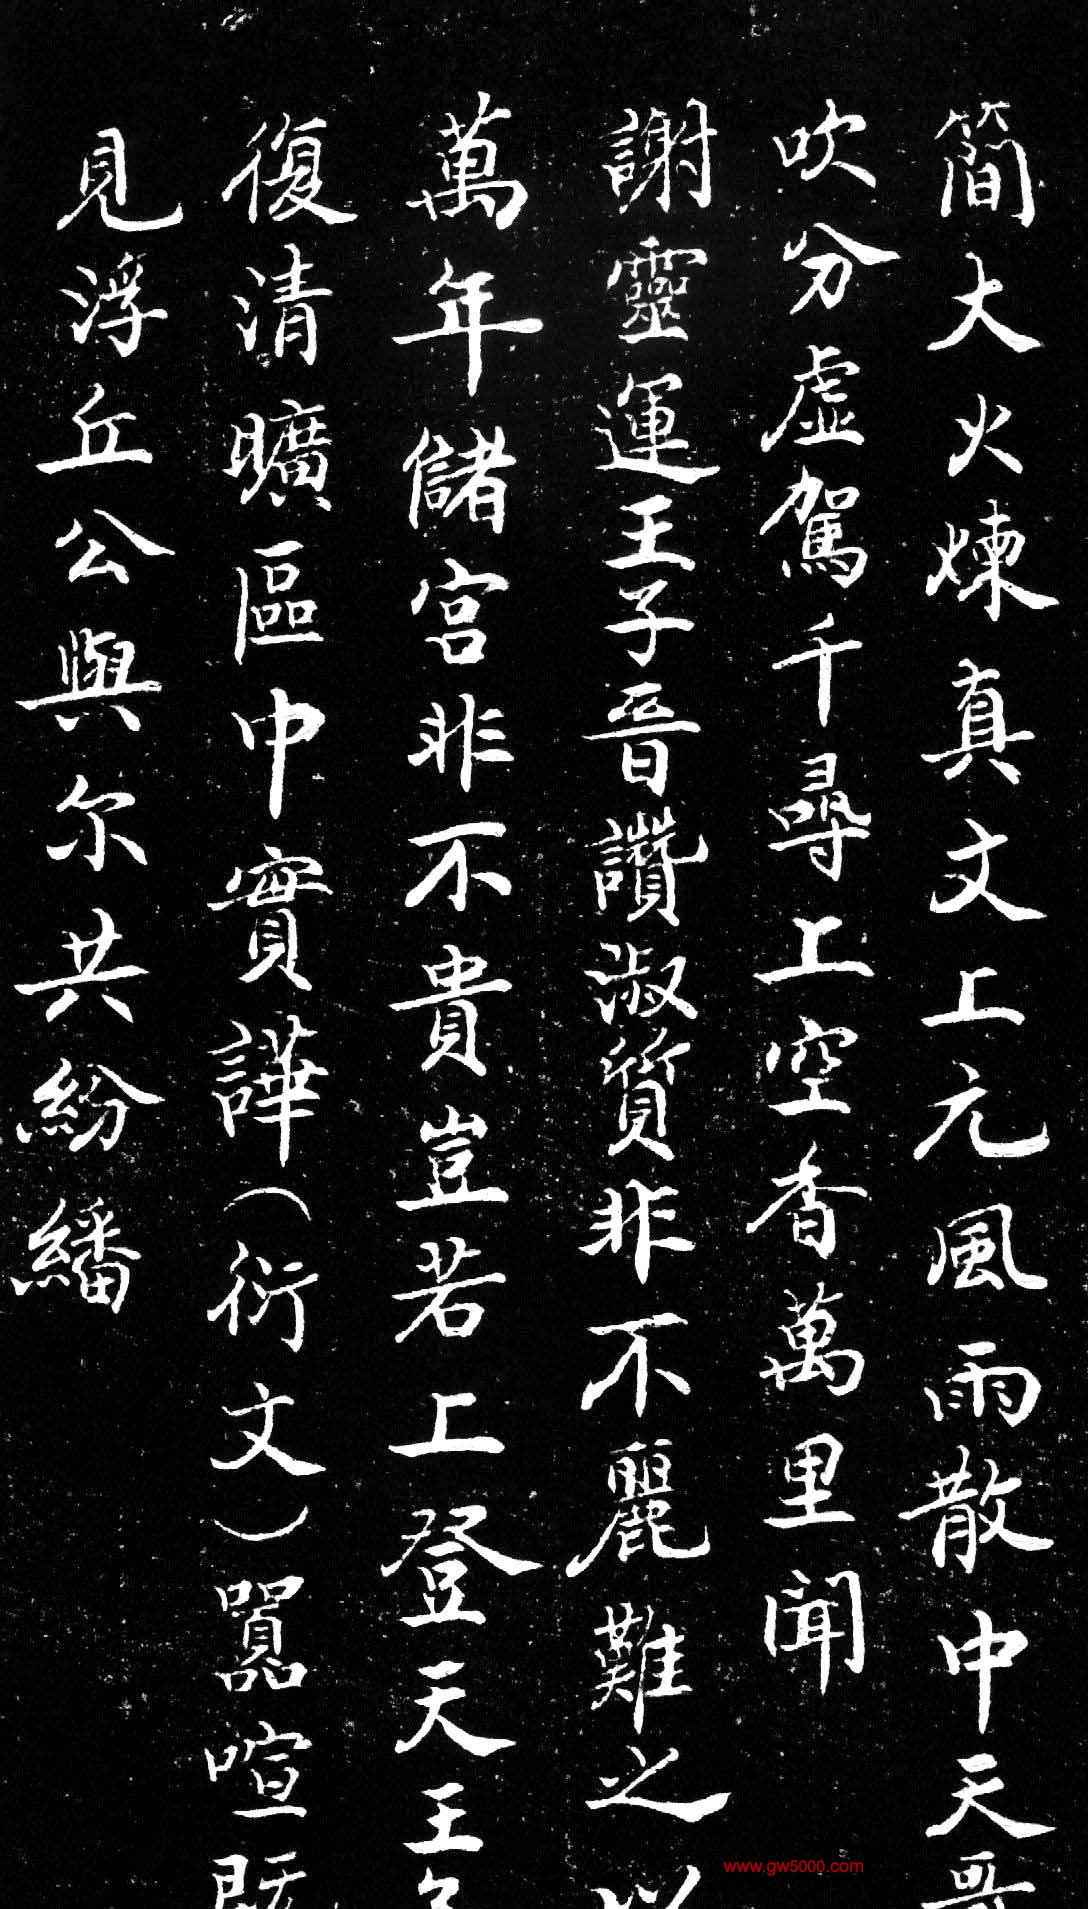 簡大火煉真文上元風雨散中天哥
吹分虛駕千尋上空香萬里聞
謝靈運王子晉讚淑質非不麗難之以
萬年儲宮非不貴豈若上登天王子
復清曠區中實譁（衍文）囂喧既
見浮丘公與尔共紛繙
www.gw5000.com